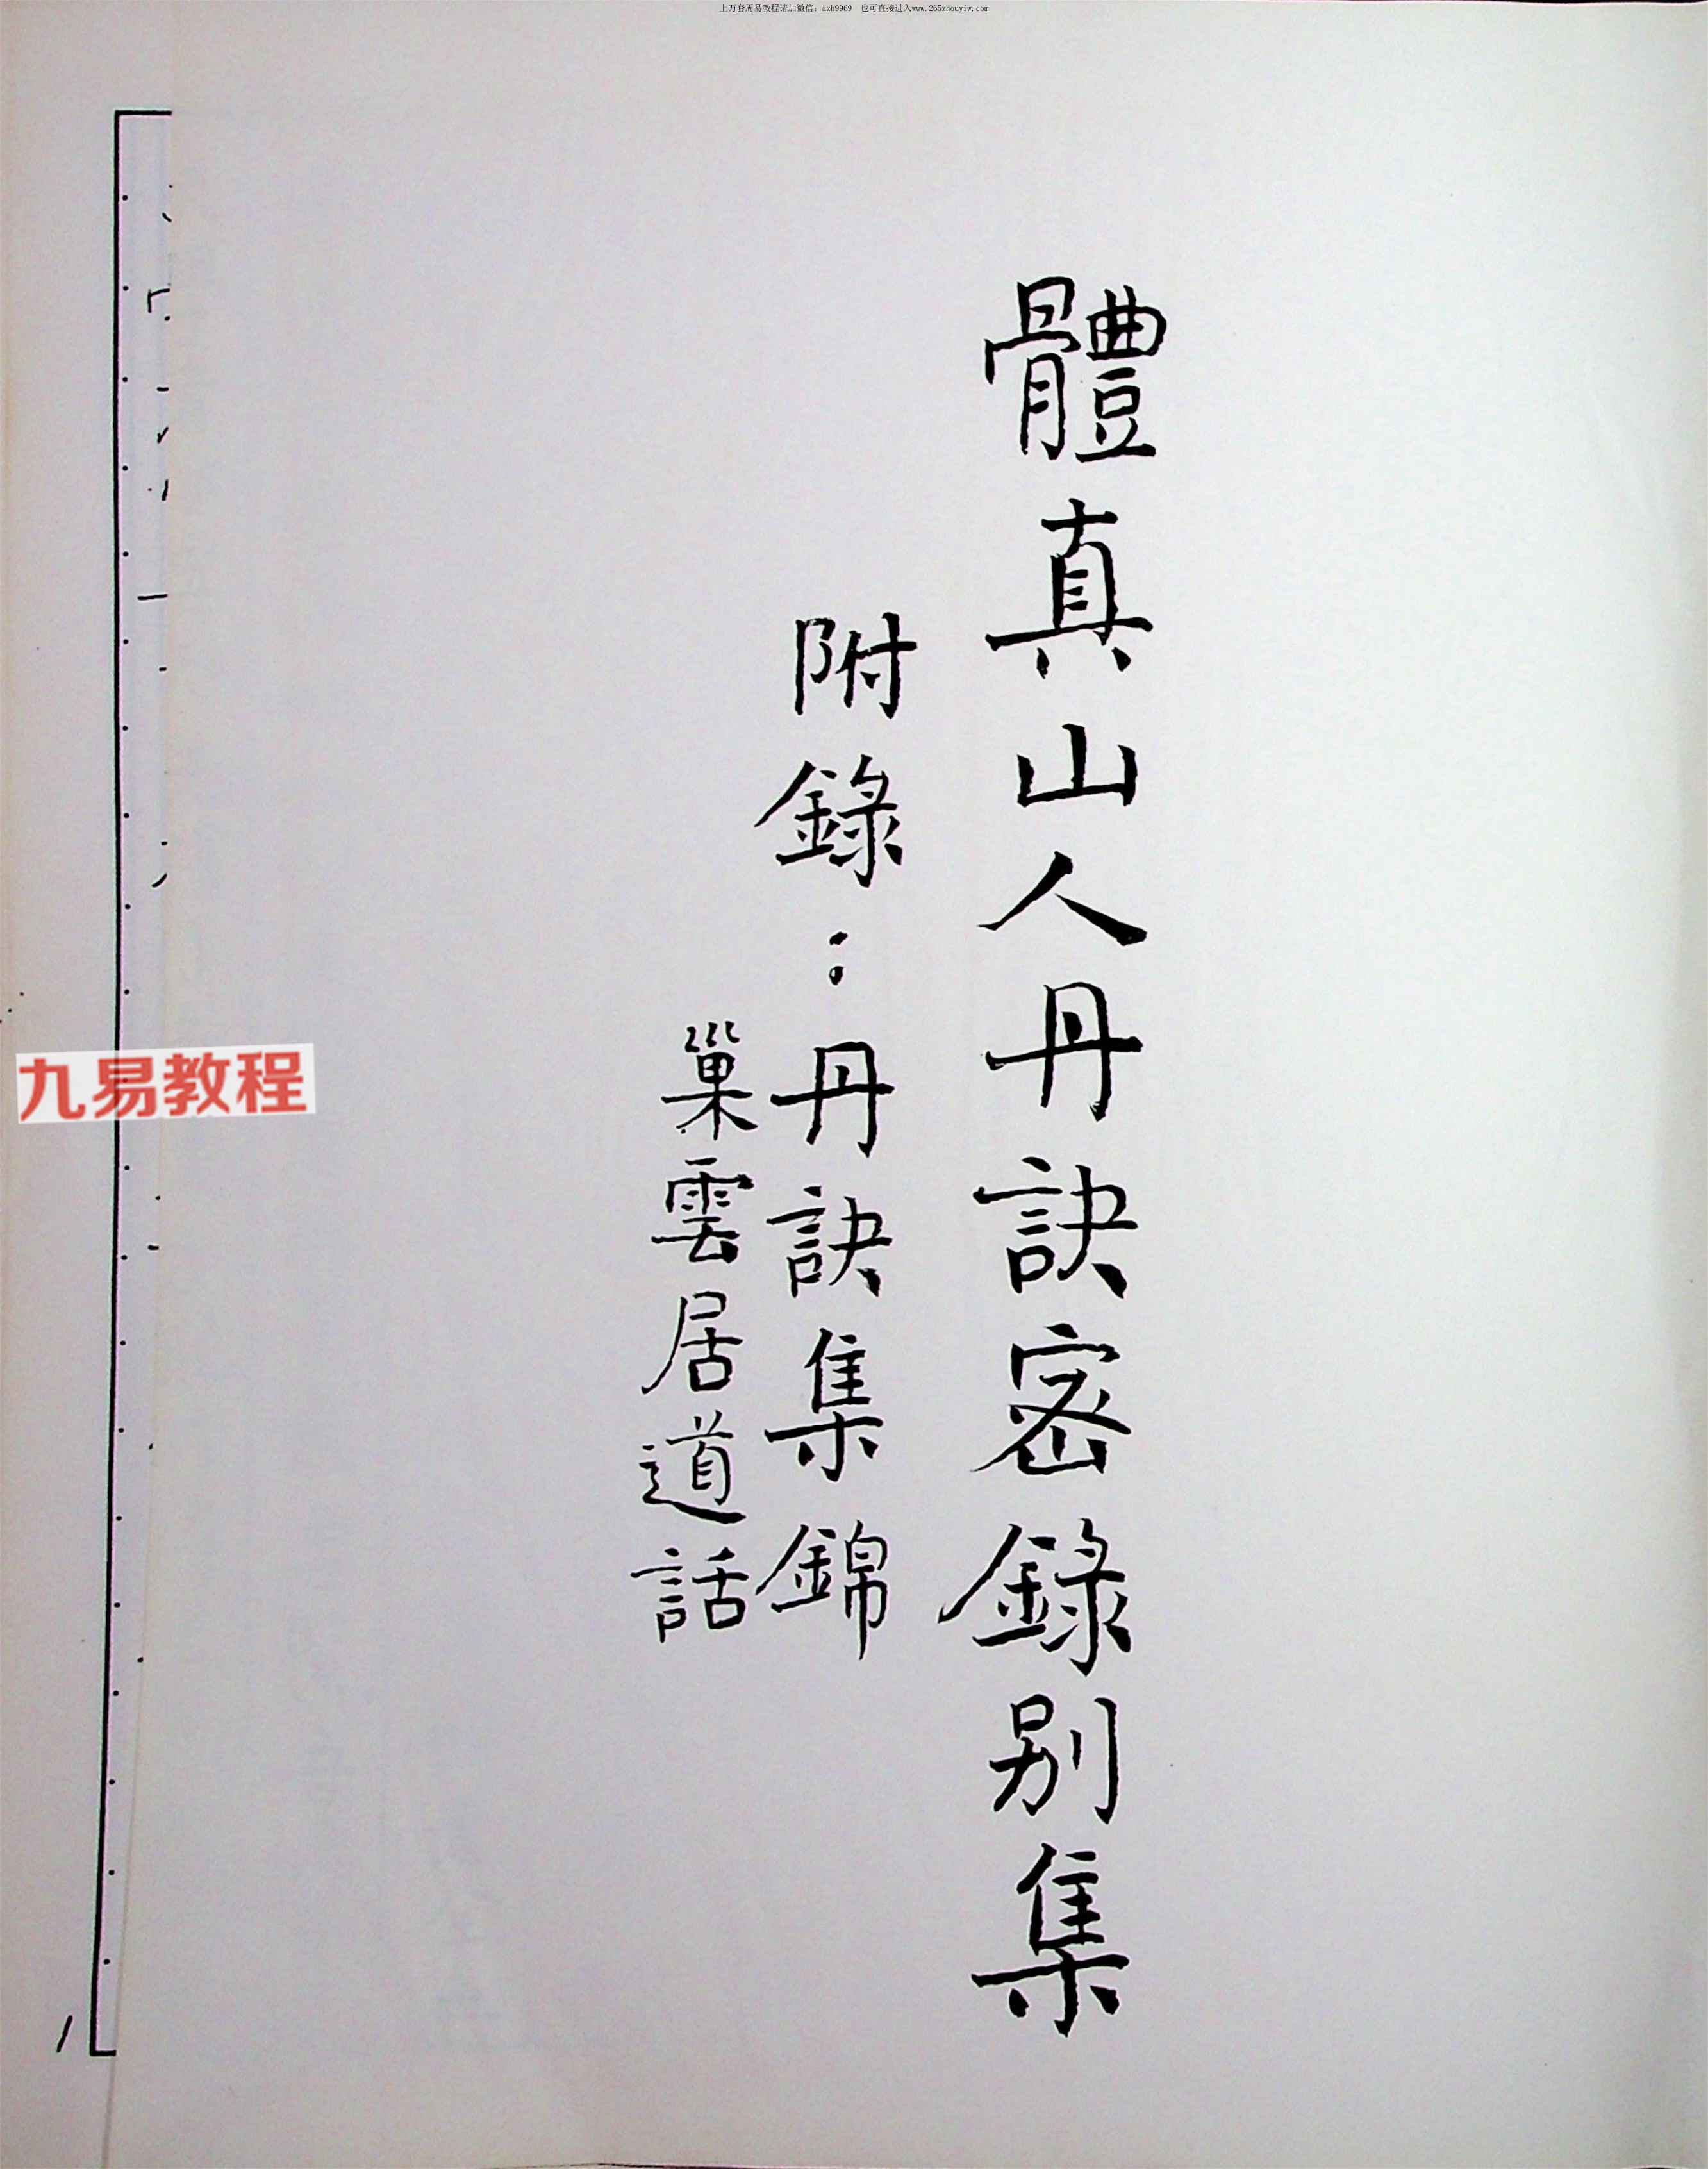 上万套周易教程请加微信：azh9969 也可直接进入www.265zhouyiw.com
體真山人丹訣密錄别集
附錄：丹訣集錦
巢雲居道話
九易教程